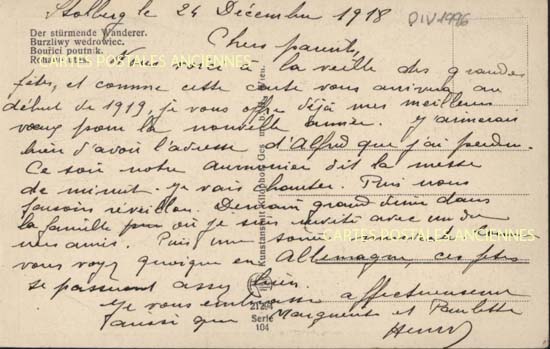 Stolberg le 24 Décembre 1918
DIV1996
Der stürmende Wanderer.
Burzliwy wedrowiec.
Bouřící poutník.
CARTES POSTALES ANCIENNES
Chers parents,
Nous voici à la veille des grandes
fêtes, et comme cette carte vous arrivera au
début de 1919, je vous offre déjà mes meilleurs
vœux pour la nouvelle année. J'aimerais
bien d'avoir l'adresse d'Alfred que j'ai perdue.
Ce soir notre aumonier dit la messe
de minuit. Je vais chanter. Puis nous
faisons réveillon. Demain grand diner dans
la famille où je suis invité avec un de
mes amis. Puis une soirée
CARTES POSTALES ANCIENNES
vous voyez quoique en Allemagne, ces fêtes
se passeront assez bien.
Je vous embrasse affectueusement
aussi que Marguerite et Paulette
Henri
Kunstanstalt Kilophot Ges. m. b. H., Wien.
Serie
104